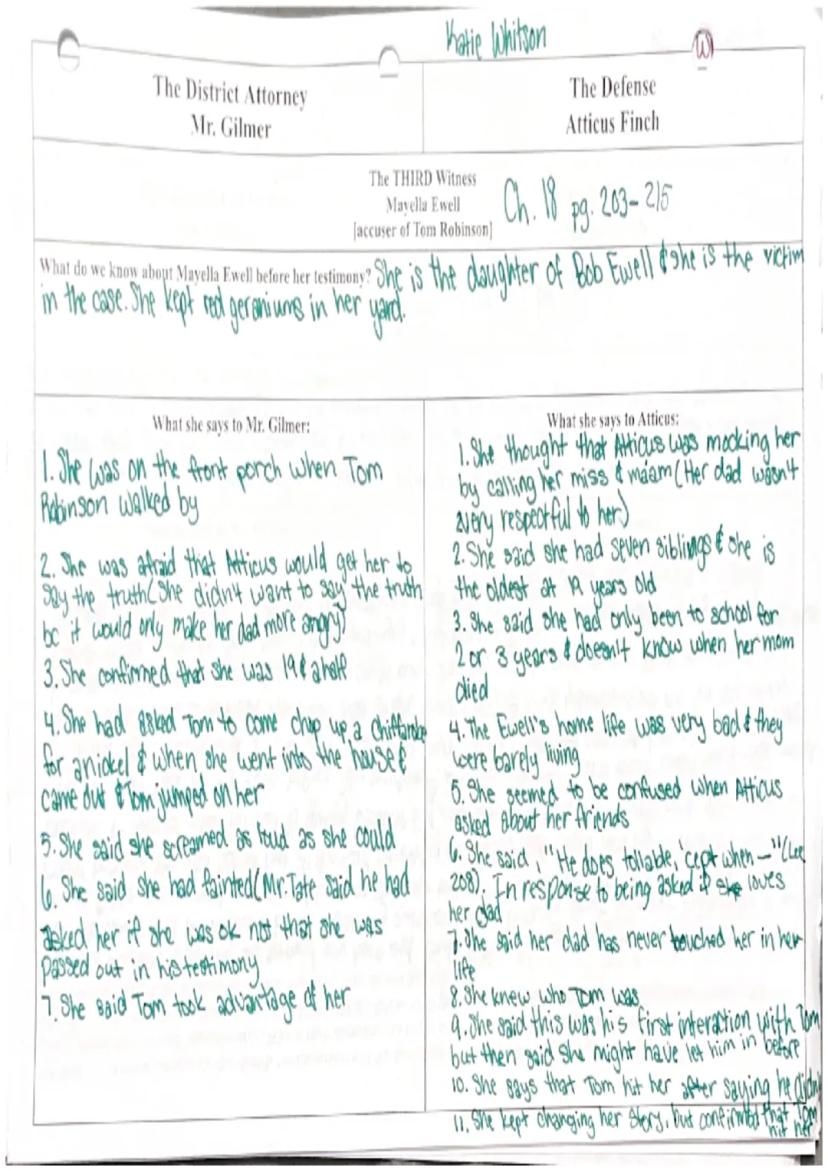 Katie Whitson
W
The District Attorney
Mr. Gilmer
The Defense
Atticus Finch
The THIRD Witness
Mayella Ewell
[accuser of Tom Robinson]
Ch. 18 pg. 203-215
What do we know about Mayella Ewell before her testimony? She is the daughter of Bob Ewell & she is the victim
in the case. She kept red geraniums in her yard.
What she says to Mr. Gilmer:
1. She was on the front porch when Tom
Robinson walked by
2. She was afraid that Atticus would get her to
say the truth (she didn't want to say the truth
bc it would only make her dad more angry)
3. She confirmed that she was 19 & a half
4. She had asked Tom to come chop up a chiffarobe
for a nickel & when she went into the house &
came out & Tom jumped on her
5. She said she screamed as loud as she could
6. She said she had fainted (Mr. Tate said he had
asked her if she was ok not that she was
passed out in his testimony
7. She said Tom took advantage of her
What she says to Atticus:
1. She thought that Atticus was mocking her
by calling her miss & ma'am (Her dad wasn't
very respectful to her)
2. She said she had seven siblings & she is
the oldest at 19 years old
3. She said she had only been to school for
2 or 3 years & doesn't know when her mom
died
4. The Ewell's home life was very bad & they
were barely living
5. She seemed to be confused when Atticus
asked about her friends
6. She said, "He does tollable, 'cept when —" (Lee
208). In response to being asked if she loves
her dad
7. She said her dad has never touched her in her
life
8. She knew who Tom was
9. She said this was his first interaction with Tom
but then said she might have let him in before
10. She says that Tom hit her after saying he didn
11. She kept changing her story, but confirmed that Tom
hit her